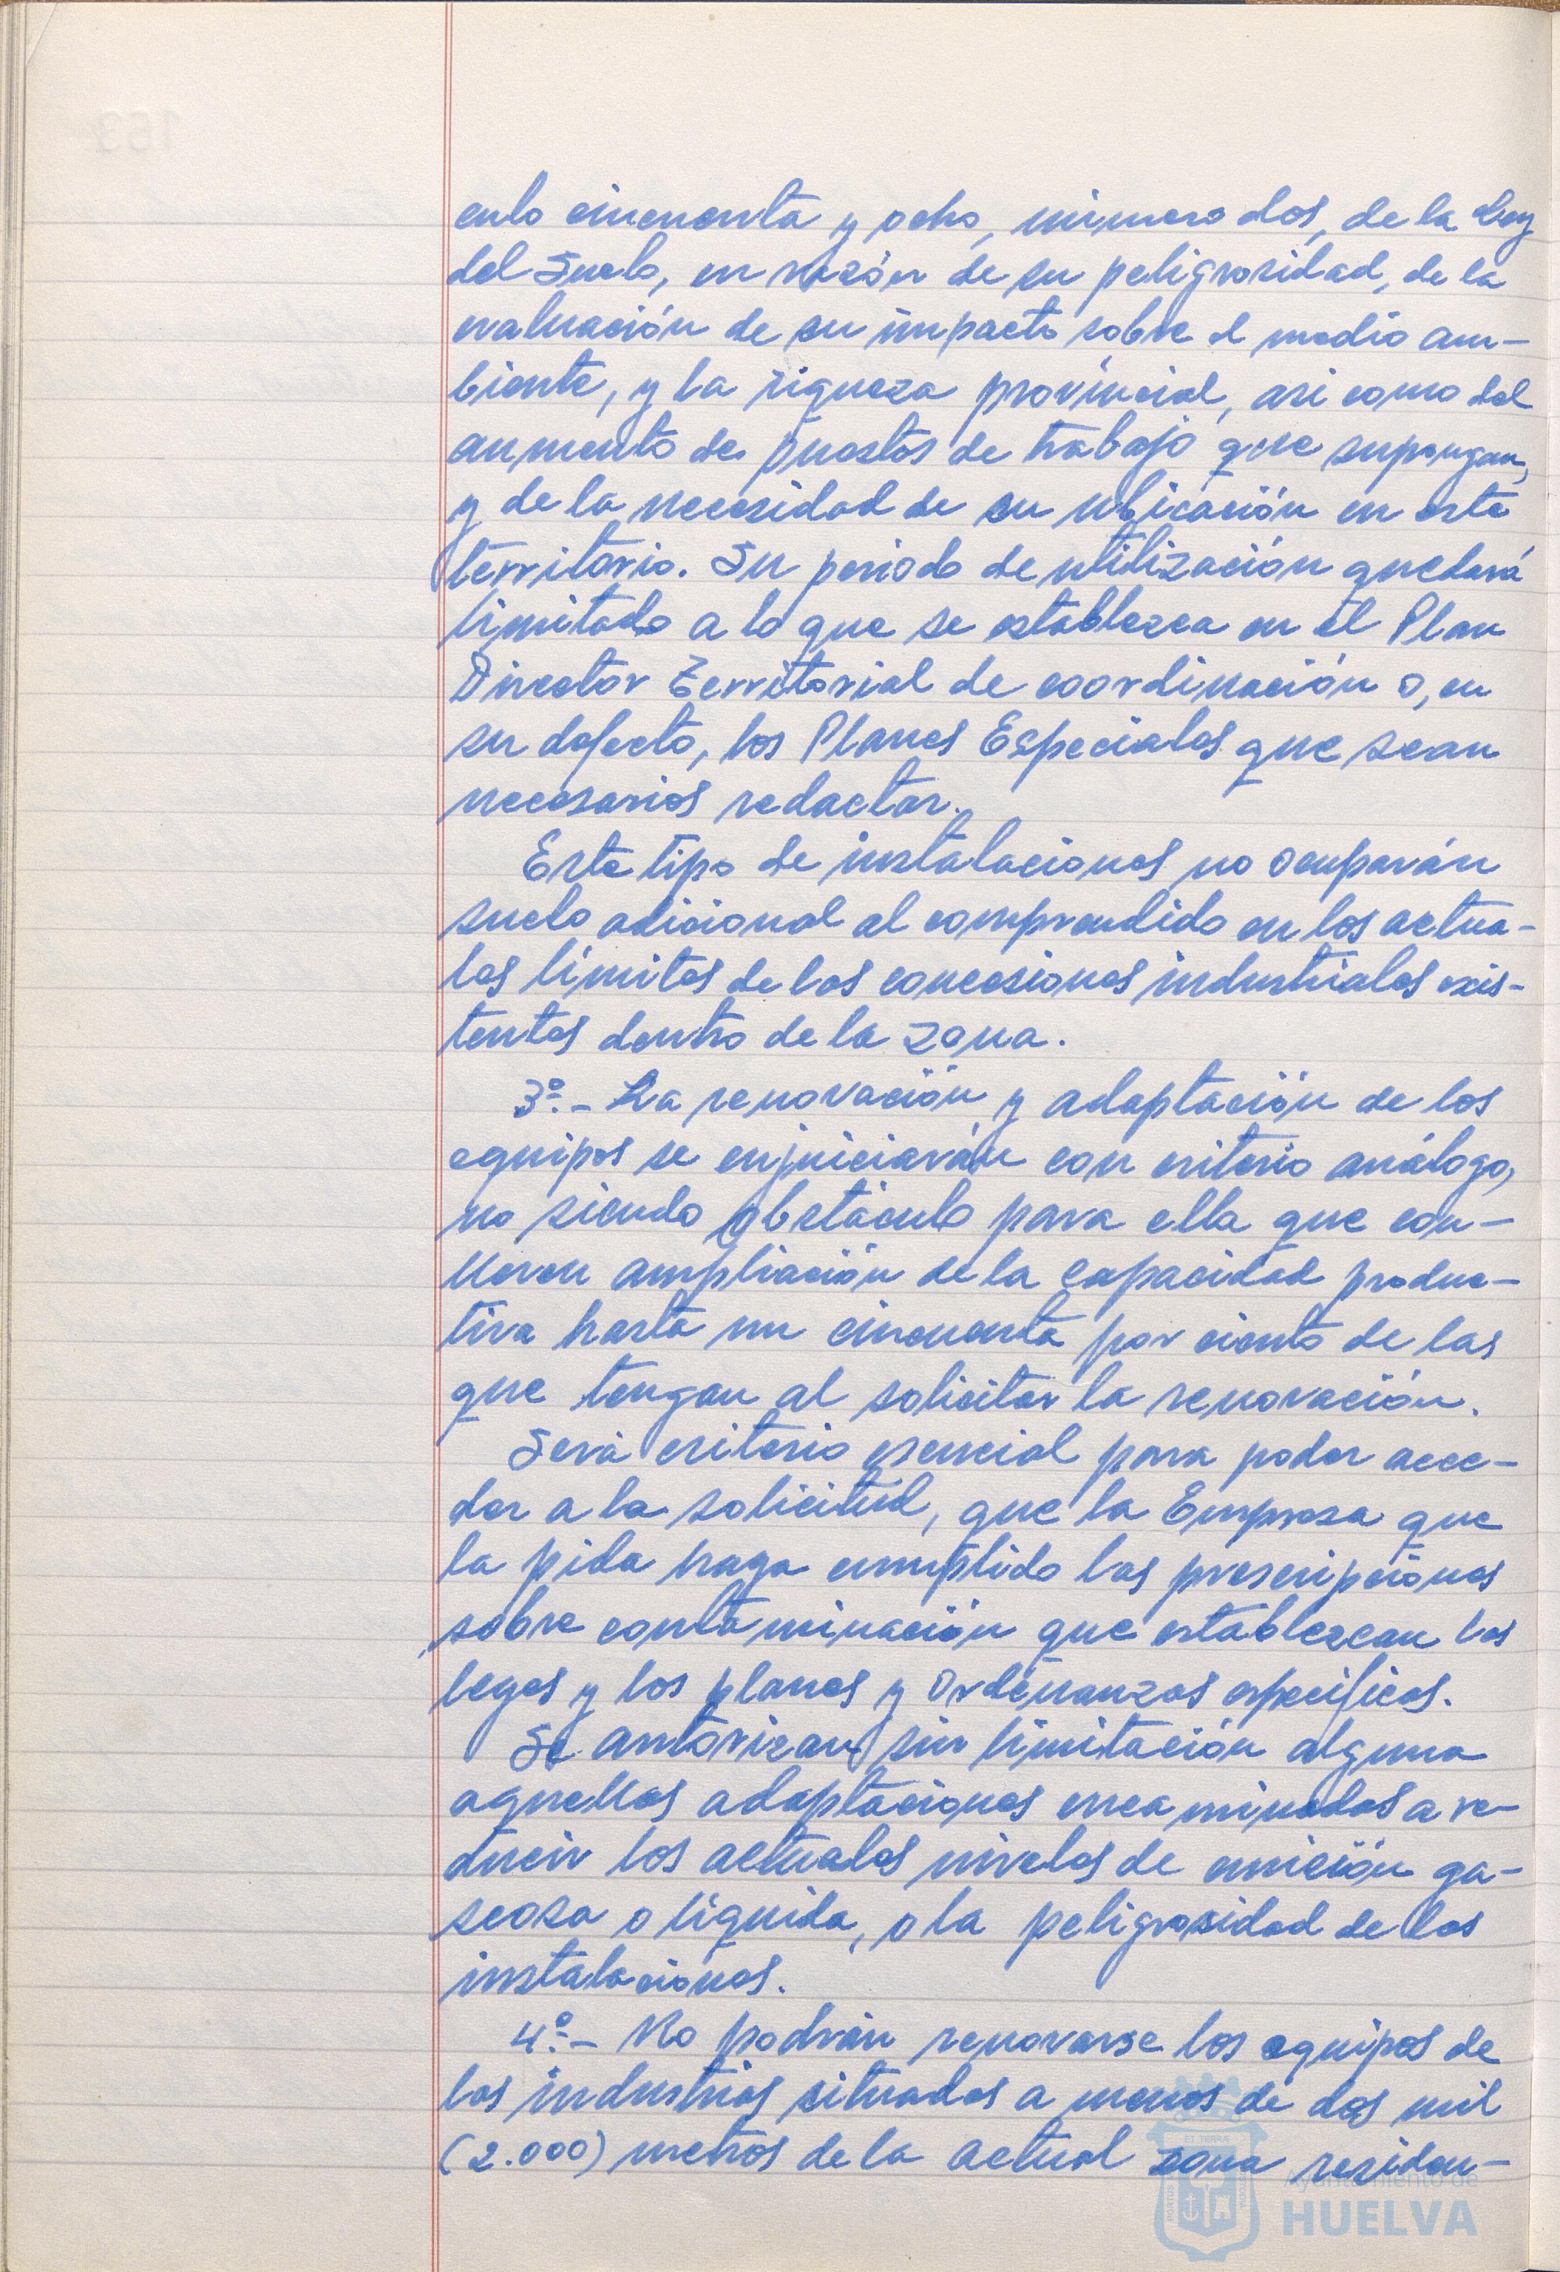 culo cincuenta y ocho, número dos, de la Ley
del Suelo, en razón de su peligrosidad, de la
evaluación de su impacto sobre el medio am-
biente, y la riqueza provincial, asi como del
aumento de puestos de trabajo que supongan,
y de la necesidad de su ubicación en este
territorio. Su periodo de utilización quedará
limitado a lo que se establezca en el Plan
Director Territorial de coordinación o, en
su defecto, los Planes Especiales que sean
necesarios redactar.
Este tipo de instalaciones no ocuparán
suelo adicional al comprendido en los actua-
les límites de las concesiones industriales exis-
tentes dentro de la zona.
3º.- La renovación y adaptación de los
equipos se enjuiciarán con criterio análogo,
no siendo obstáculo para ella que con-
lleven ampliación de la capacidad produc-
tiva hasta un cincuenta por ciento de las
que tengan al solicitar la renovación.
Será criterio esencial para poder acce-
der a la solicitud, que la Empresa que
la pida haga cumplido las prescripciones
sobre contaminación que establezcan las
leyes y los planes y Ordenanzas específicas.
Se autorizan sin limitación alguna
aquellas adaptaciones encaminadas a re-
ducir los actuales niveles de emisión ga-
seosa o líquida, o la peligrosidad de las
instalaciones.
4º.- No podrán renovarse los equipos de
las industrias situadas a menos de dos mil
(2.000) metros de la actual zona residen-
Ayuntamiento de
HUELVA